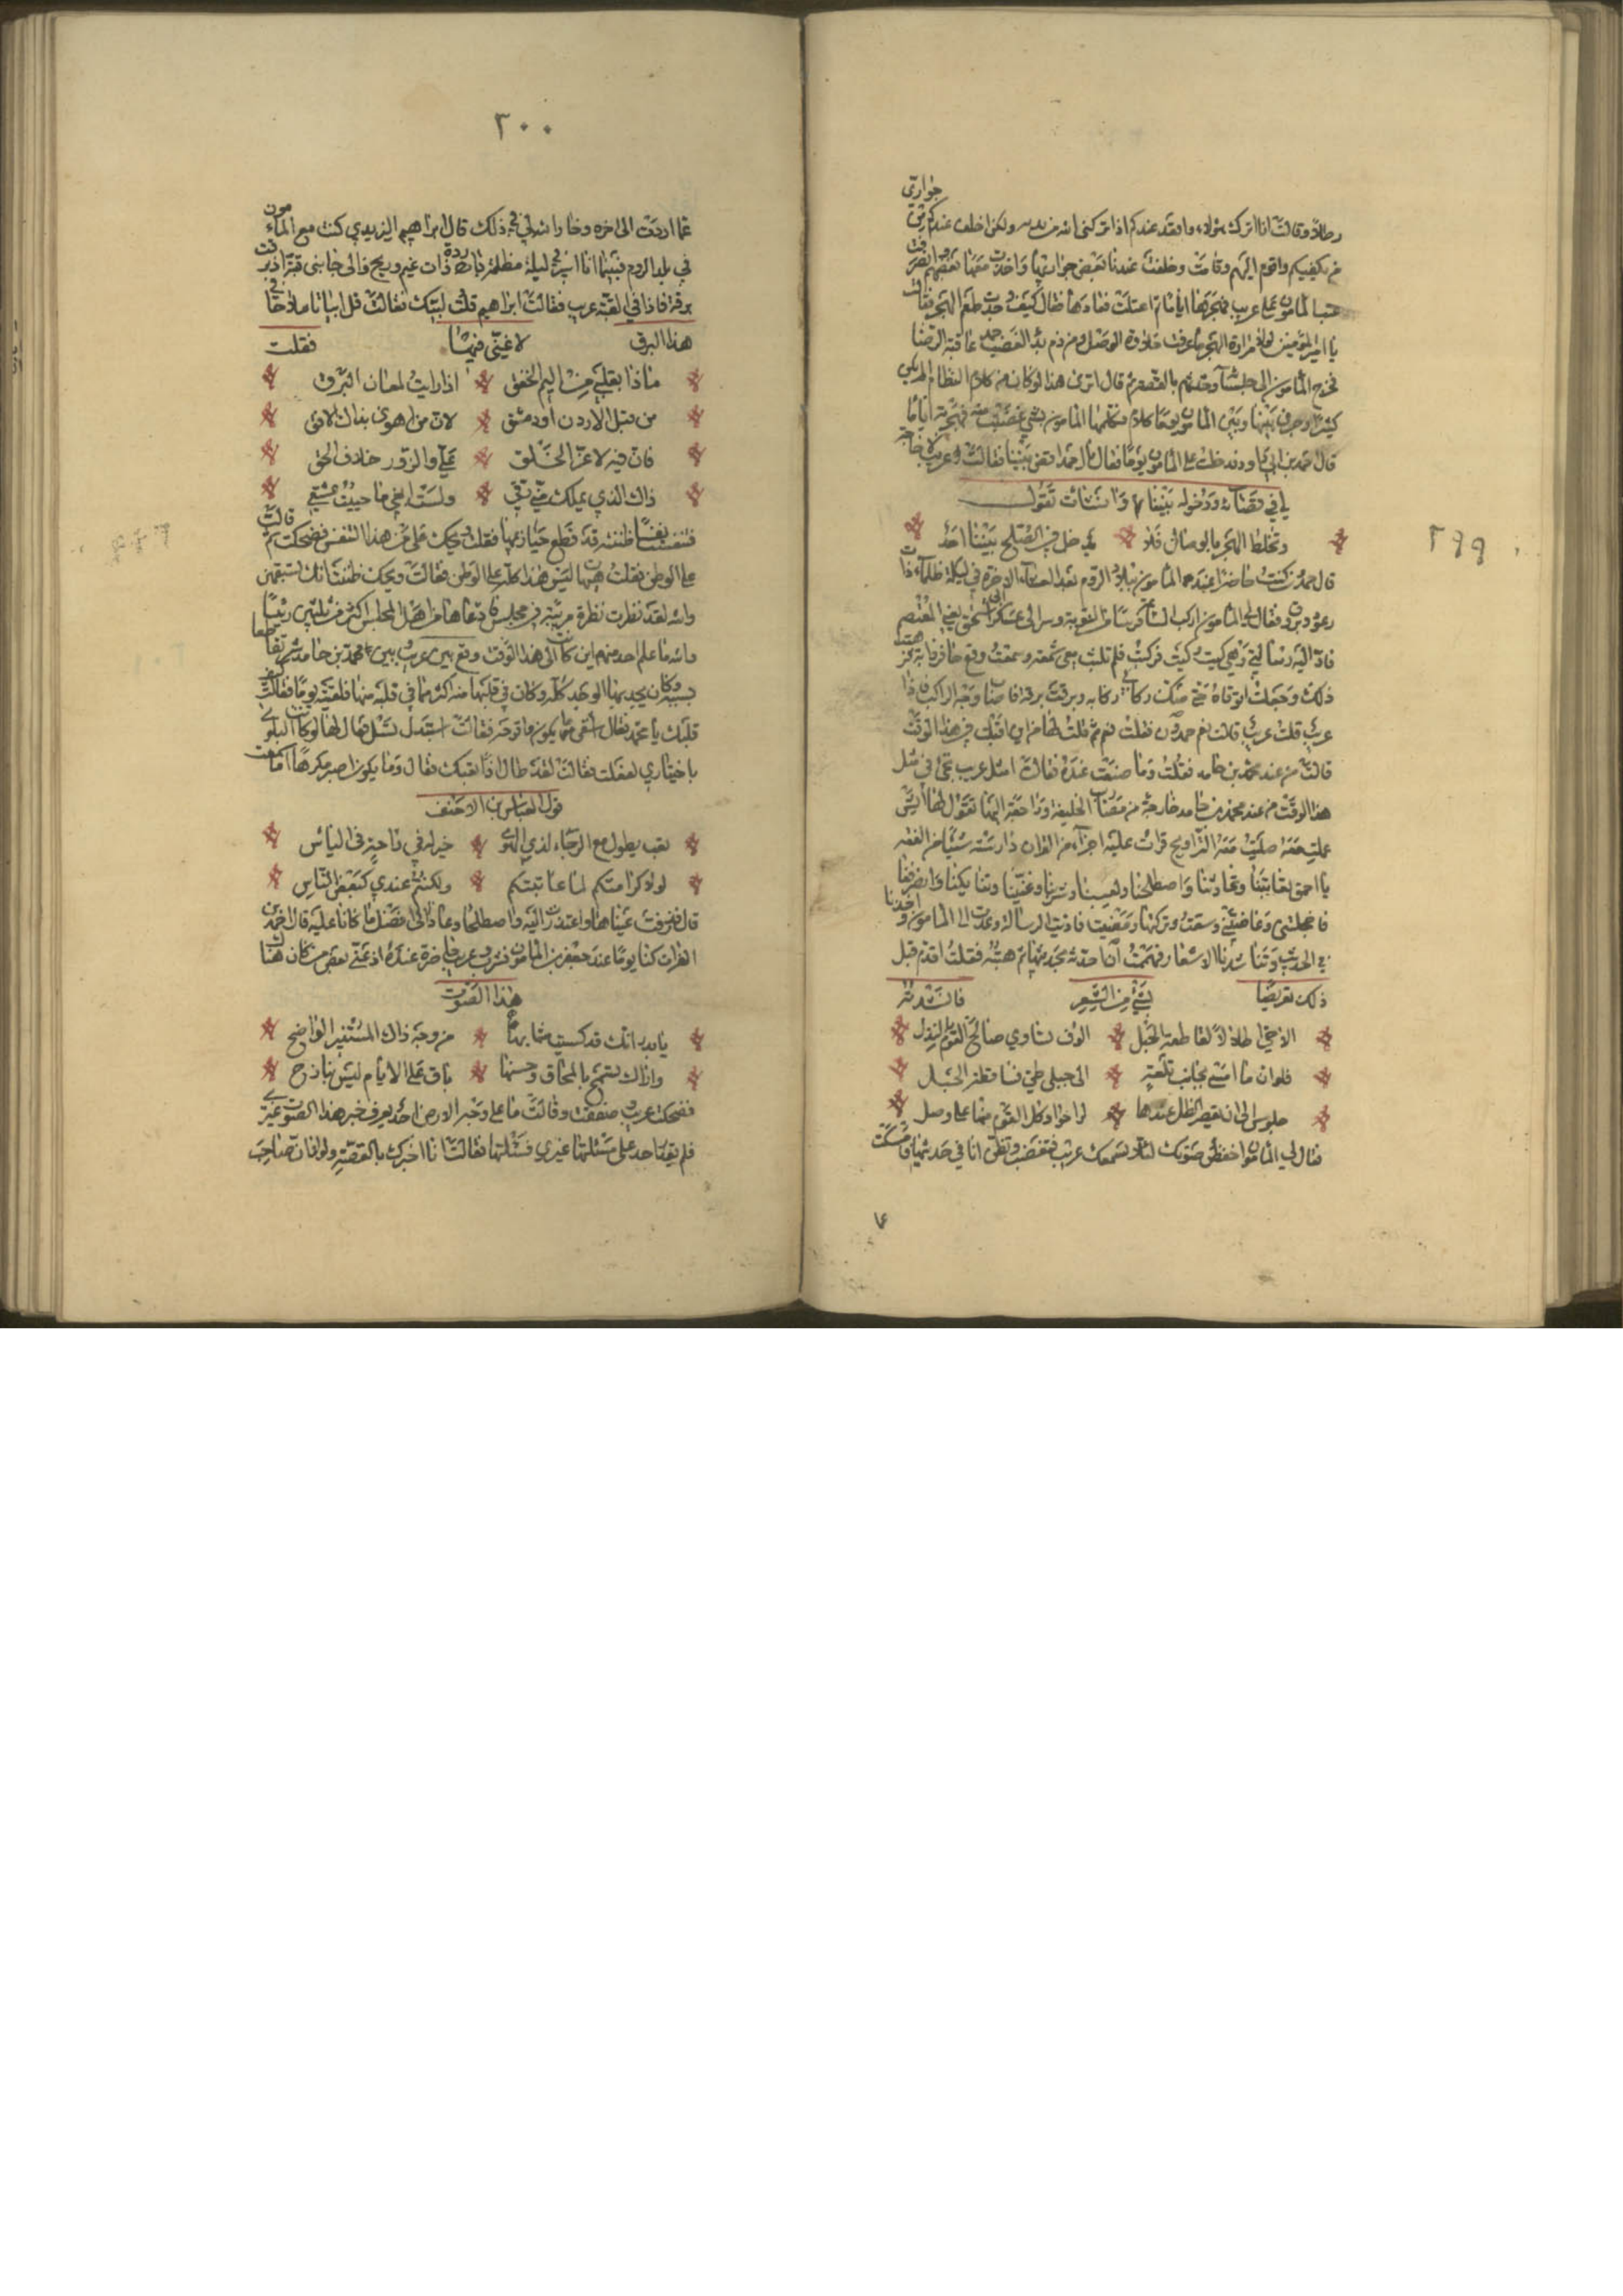 ٢٩٩
جوارى
رطلا وقالت انا اترك هؤلاء واقعد عندكم اذا تركنى الله من يديه ولكن اخلف عندكم بعض
من يكفيكم واقوم اليهم وقامت وخلفت عندنا بعض جواريها واخذت معها بعضهم وانصرفت
عتب المامون على عريب فهجرها اياما ثم اعتلت فعادها فقال كيف وجدت طعم الهجر فقالت
يا امير المؤمنين لولا مرارة الهجر ما عرفت حلاوة الوصل ومن ذم بدء الغضب حمد عاقبة الرضا
فخرج المامون الى جلسائه وحدثهم بالقصة ثم قال اترى هذا لو كان من كلام النظام الم يكن
كبيرا وجرى بينها وبين المامون يوما كلام فكلمها المامون بشئ غضبت منه فهجرته اياما
قال احمد بن ابى دواد فدخلت على المامون يوما فقال يا احمد اقض بيننا فقالت عريب لا حاجة
لى فى قضائه ودخوله بيننا وانشات تقول
وتخلط الهجر بالوصال فلا يدخل فى الصلح بيننا احد
قال حمدون كنت حاضرا عند المامون ببلاد الروم بعد العشاء الاخرة فى ليلة ظلماء ذات
رعود وبروق فقال لى المامون اركب الساعة فرس النوبة وسر الى عسكر ابى اسحق يعنى المعتصم
فاد اليه رسالتى وهى كيت وكيت فركبت فلم تلبث معى شمعة وسمعت وقع حافر دابة
ذلك وجعلت اتوقاه حتى صك ركابى ركابه وبرقت برقة فاضات وجه الراكب فاذا
عريب قلت عريب قالت نعم حمدون فقلت نعم ثم قلت لها من اين اقبلت فى هذا الوقت
قالت من عند محمد بن حامد فقلت وما صنعت عنده فقالت امثل عريب تجئ فى مثل
هذا الوقت من عند محمد بن حامد خارجة من مضارب الخليفة وراجعة اليها تقول لها ايش
عملت معه صليت معه التراويح قرات عليه اجزاء من القران دارسته شيئا من الفقه
يا احمق تعاتبنا وتحادثنا واصطلحنا ولعبنا وشربنا وغنينا وانصرفنا
فاخجلتنى وغاظتنى وسقت وتركتها ومضيت فاديت الرسالة وعدت الى المامون واخذنا
فى الحديث وتناشدنا الاشعار فهممت ان احدثه بحديثها ثم هبته فقلت اقدم قبل
ذلك تعريضا بشئ من الشعر فانشدته
الا حى اطلالا لقاطعة الحبل الوف تساوى صالح القوم بالنذل
فلو ان ما امسى بجانب تلعة الى جبلى طى فساقطة الحبل
جلوس الى ان يقصر الظل عندها لراحوا وكل القوم منها على وصل
فقال لى المامون اخفض صوتك لئلا تسمعك عريب فتغضب وتظن انا فى حديثها فامسكت
٣٠٠
عما اردت الى اخره وخار الله لى فى ذلك قال ابراهيم اليزيدى كنت مع المامون
فى بلد الروم فبينما انا اسير فى ليلة مظلمة باردة ذات غيم وريح والى جانبى قبة اذ برقت
برقة فاذا فى القبة عريب فقالت ابراهيم قلت لبيك فقالت قل ابياتا ملاحا فى
هذا البرق لاغنى فيها فقلت
ماذا بقلبى من اليم الخفق اذا رايت لمعان البرق
من قبل الاردن او دمشق لان من اهوى بذاك الافق
فان فيه لا عز الخلق على والزور خلاف الحق
ذاك الذى يملك منى رقى ولست ابغى ما حييت عتقى
فتنفست نفسا ظننته قد قطع حيازيمها فقلت ويحك على من هذا التنفس فضحكت ثم قالت
على الوطن فقلت هيهات ليس هذا كله على الوطن فقالت ويحك ظننت انك تستفزنى
والله لقد نظرت نظرة مريبة فى مجلس فادعاها من اهل المجلس اكثر من ثلثين رئيسا
والله ما علم احد منهم اين كانت الى هذا الوقت وقع بين عريب وبين محمد بن حامد شر تقاطعا
بسببه وكان يجد بها الوجد كله وكان فى قلبها منه اكثر مما فى قلبه منها فلقيته يوما فقالت كيف
قلبك يا محمد فقال اشقى مما يكون واقرحه فقالت استبدل تسل فقال لها لو كانت البلوى
باختيارى لفعلت فقالت لقد طال اذا تعبك فقال وما يكون اصبر مكرها اما سمعت
قول العباس بن الاحنف
تعب يطول مع الرجاء لذى الهوى خير له فى راحة فى الياس
لولا كرامتكم لما عاتبتكم ولكنتم عندى كبعض الناس
قال فذرفت عيناها واعتذرت اليه واصطلحا وعادا الى افضل ما كانا عليه قال احمد بن
الفرات كنا يوما عند جعفر بن المامون نشرب وعريب حاضرة عنده اذ غنى بعض من كان هناك
هذا الصوت
يا بدر انك قد كسيت مشابها من وجه ذاك المستنير الواضح
واراك تمتح بالمحاق وحسنها باق على الايام ليس ببارح
فضحكت عريب وصفقت وقالت ما على وجه الارض احد يعرف خبر هذا الصوت غيرى
فلم يقدم احد على مسئلتها غيرى فسئلتها فقالت انا اخبرك بالقصة ولولا ان صاحب